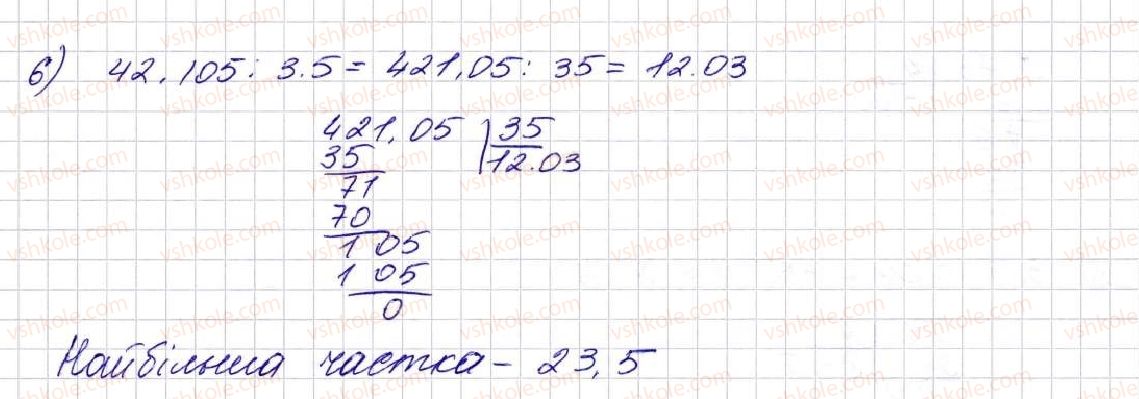 6) 42,105 : 3.5 = 421,05 : 35 = 12.03
421,05 | 35
35 12.03
71
70
1 05
1 05
0
Найбільша частка - 23,5